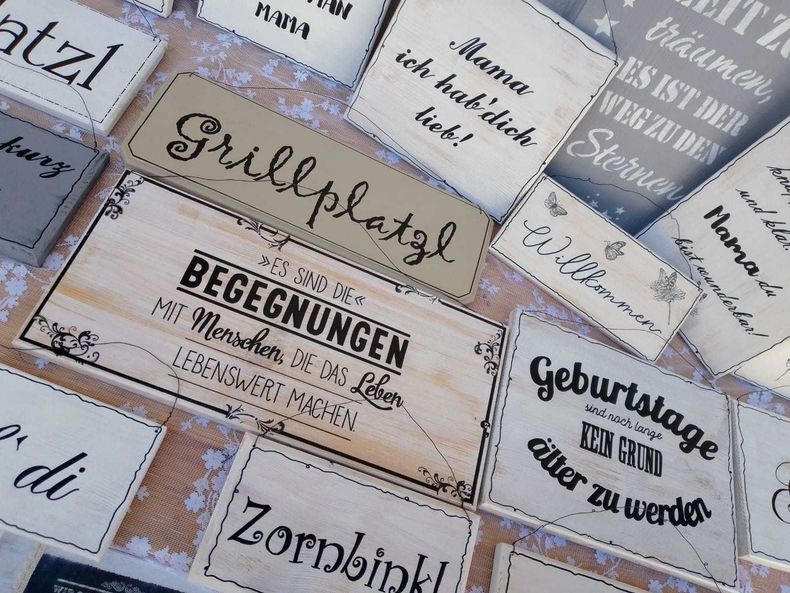 MAMA
atzl
Mama
ich hab'dich
lieb!
träumen,
ES IST DER
WEG ZU DEN
Sternen
kurz
Grillplatzl
Willkommen
und klar,
Mama du
bist wunderbar!
»ES SIND DIE«
BEGEGNUNGEN
MIT Menschen, DIE DAS Leben
LEBENSWERT MACHEN.
Geburtstage
sind noch lange
KEIN GRUND
älter zu werden
di
Zornbinkl